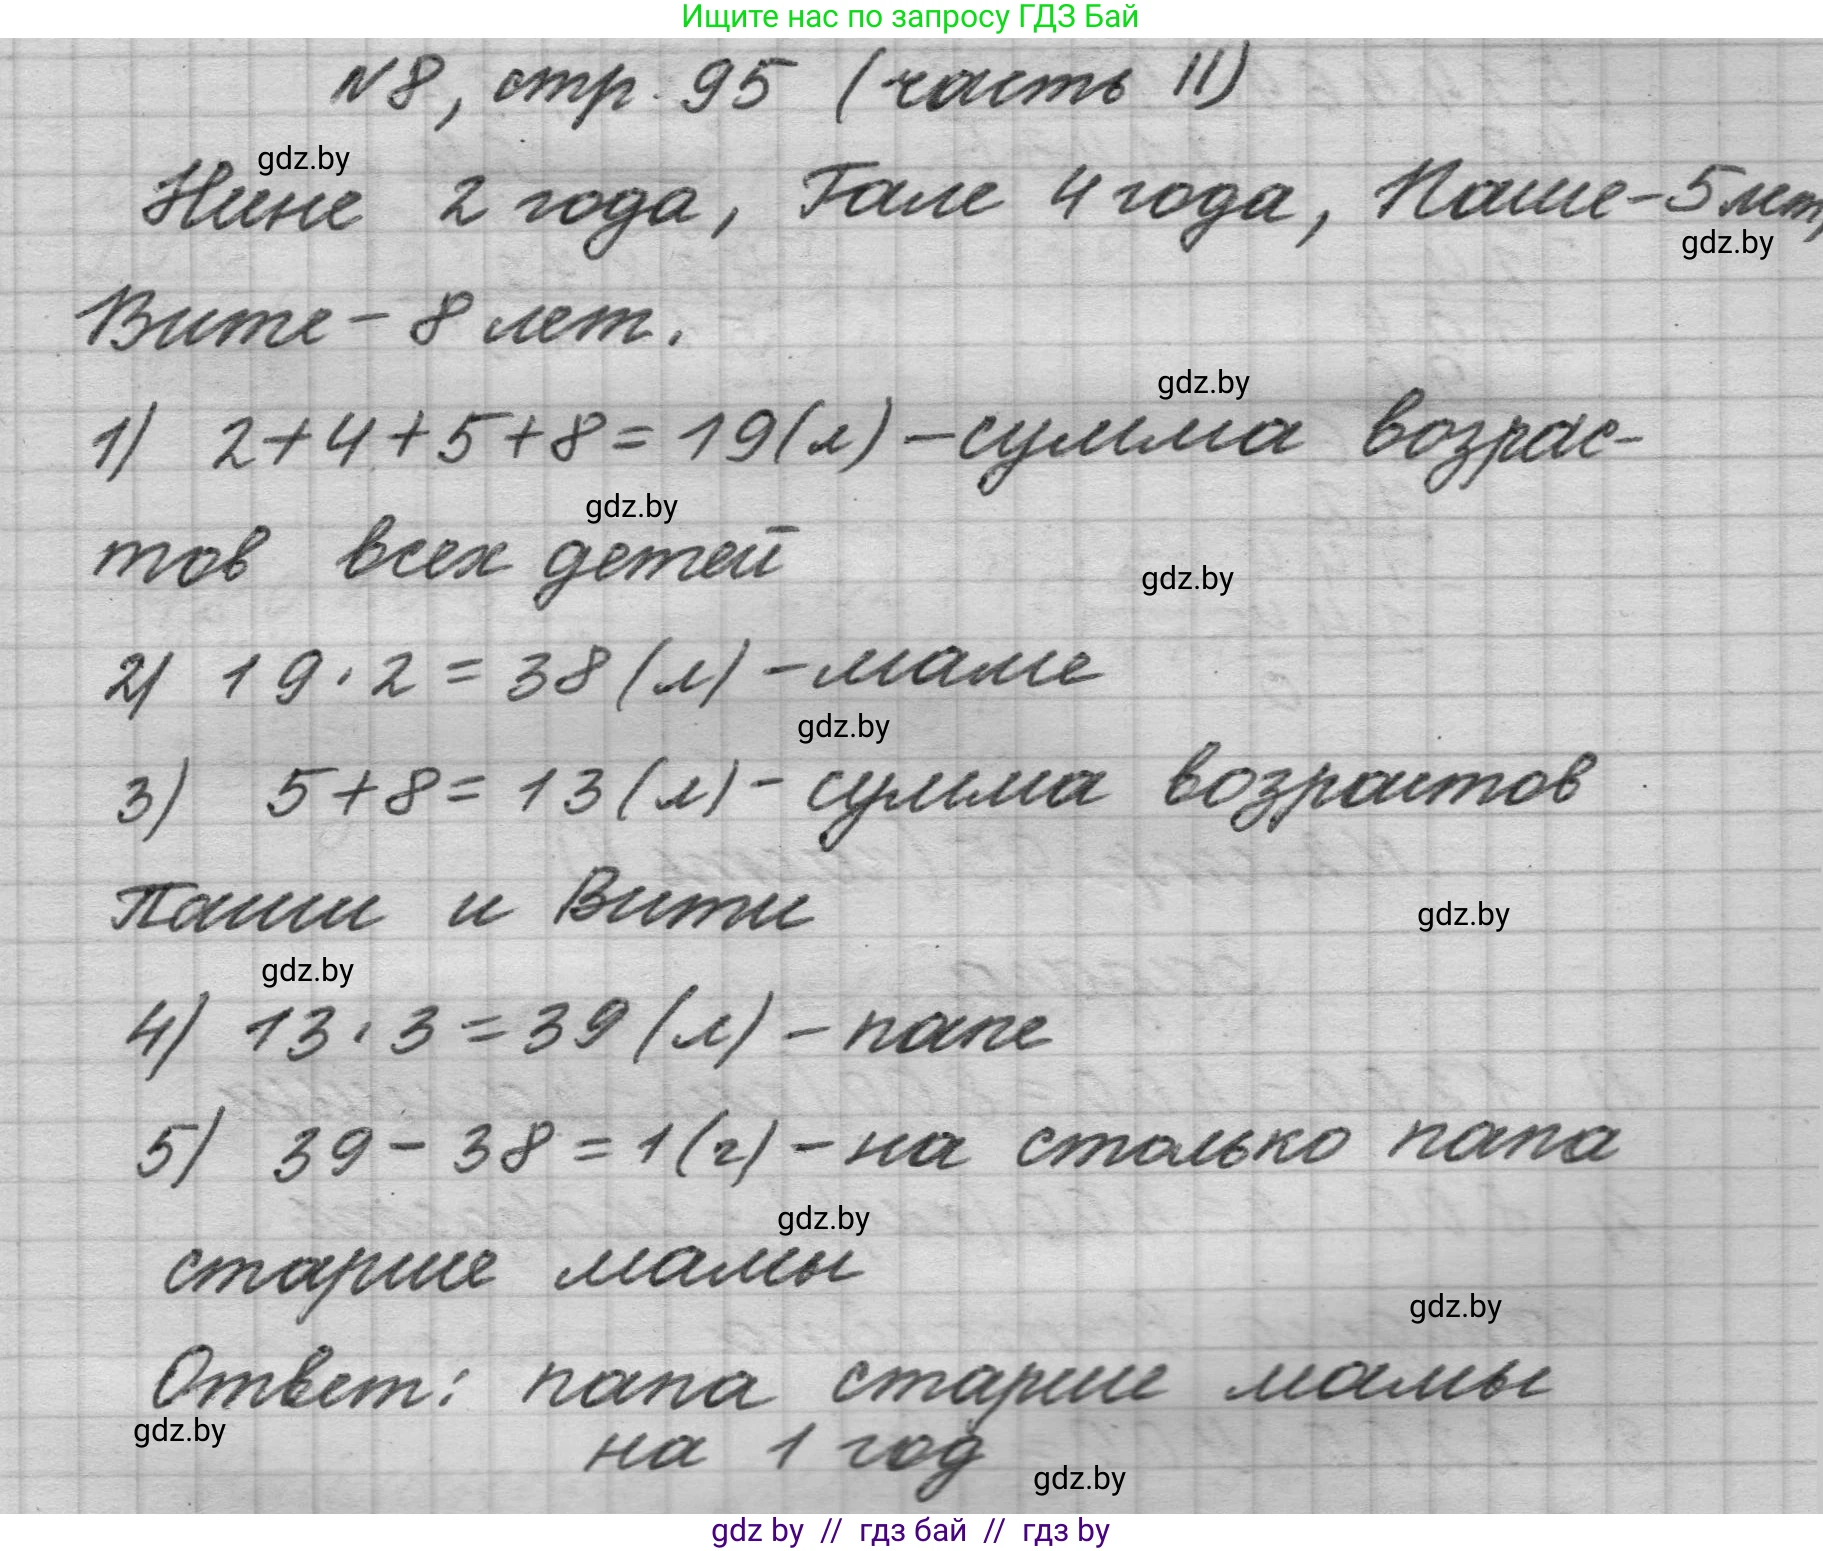 Ищите нас по запросу ГДЗ Бай
N8, стр. 95 (часть II)
gdz.by
Нине 2 года, Гале 4 года, Паше - 5 лет,
gdz.by
Вите - 8 лет.
gdz.by
1) 2+4+5+8=19(л) - сумма возрас-
gdz.by
тов всех детей
gdz.by
2) 19·2=38(л) - маме
gdz.by
3) 5+8=13(л) - сумма возрастов
Паши и Вити
gdz.by
gdz.by
4) 13·3=39(л) - папе
5) 39-38=1(г) - на столько папа
gdz.by
старше мамы
gdz.by
Ответ: папа старше мамы
gdz.by
на 1 год
gdz.by
gdz by // гдз бай // гдз by